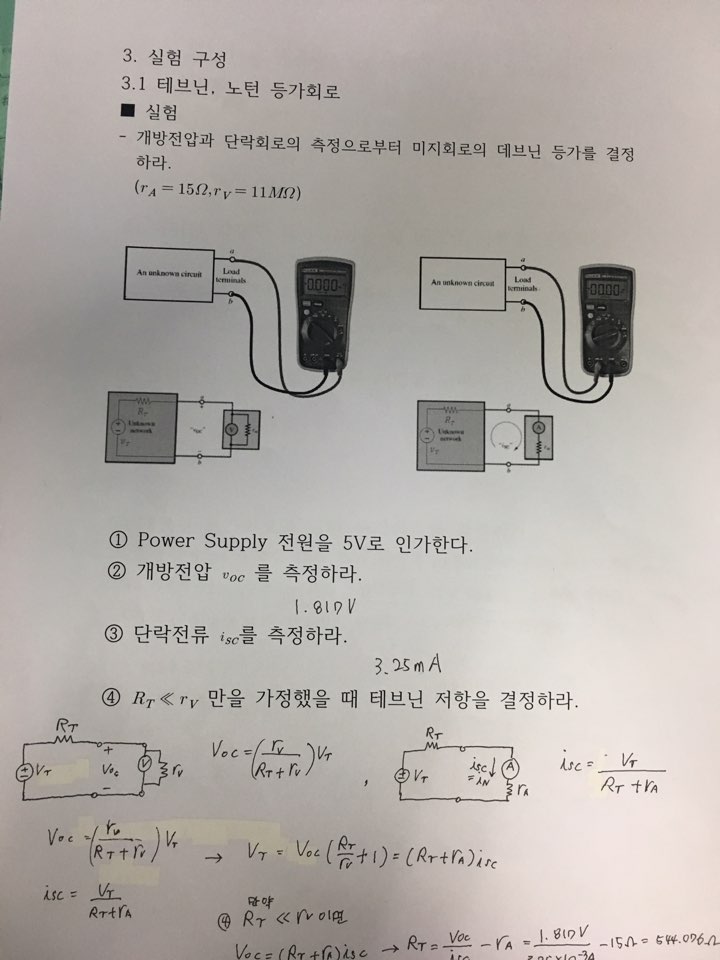 3. 실험 구성
3.1 테브닌, 노턴 등가회로
■ 실험
- 개방전압과 단락회로의 측정으로부터 미지회로의 데브닌 등가를 결정
하라.
(r_A = 15Ω, r_V = 11MΩ)
An unknown circuit
a
Load
terminals
b
0.000
R_T
Unknown
network
V_T
a
+
"v_oc"
-
b
V
An unknown circuit
a
Load
terminals
b
R_T
Unknown
network
V_T
a
b
A
① Power Supply 전원을 5V로 인가한다.
② 개방전압 v_OC 를 측정하라.
1.817V
③ 단락전류 i_SC를 측정하라.
3.25mA
④ R_T ≪ r_V 만을 가정했을 때 테브닌 저항을 결정하라.
R_T
V_T
+
V_oc
-
V
r_V
V_oc = (r_V / (R_T + r_V)) V_T
,
R_T
V_T
i_sc
= i_N
A
r_A
i_sc = V_T / (R_T + r_A)
V_oc = (r_V / (R_T + r_V)) V_T
→ V_T = V_oc (R_T / r_V + 1) = (R_T + r_A) i_sc
i_sc = V_T / (R_T + r_A)
만약
④ R_T ≪ r_V 이면
V_oc = (R_T + r_A) i_sc → R_T = V_oc / i_sc - r_A = 1.817V / 3.25×10^-3A - 15Ω = 544.076Ω